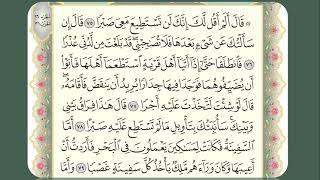 ۞ قَالَ أَلَمْ أَقُل لَّكَ إِنَّكَ لَن تَسْتَطِيعَ مَعِىَ صَبْرًا ٧٥ قَالَ إِن
سَأَلْتُكَ عَن شَىْءٍۭ بَعْدَهَا فَلَا تُصَٰحِبْنِى قَدْ بَلَغْتَ مِن لَّدُنِّى عُذْرًا
٧٦ فَٱنطَلَقَا حَتَّىٰٓ إِذَآ أَتَيَآ أَهْلَ قَرْيَةٍ ٱسْتَطْعَمَآ أَهْلَهَا فَأَبَوْا۟
أَن يُضَيِّفُوهُمَا فَوَجَدَا فِيهَا جِدَارًا يُرِيدُ أَن يَنقَضَّ فَأَقَامَهُۥ
قَالَ لَوْ شِئْتَ لَتَّخَذْتَ عَلَيْهِ أَجْرًا ٧٧ قَالَ هَٰذَا فِرَاقُ بَيْنِى
وَبَيْنِكَ سَأُنَبِّئُكَ بِتَأْوِيلِ مَا لَمْ تَسْتَطِع عَّلَيْهِ صَبْرًا ٧٨ أَمَّا
ٱلسَّفِينَةُ فَكَانَتْ لِمَسَٰكِينَ يَعْمَلُونَ فِى ٱلْبَحْرِ فَأَرَدتُّ أَنْ
أَعِيبَهَا وَكَانَ وَرَآءَهُم مَّلِكٌ يَأْخُذُ كُلَّ سَفِينَةٍ غَصْبًا ٧٩ وَأَمَّا